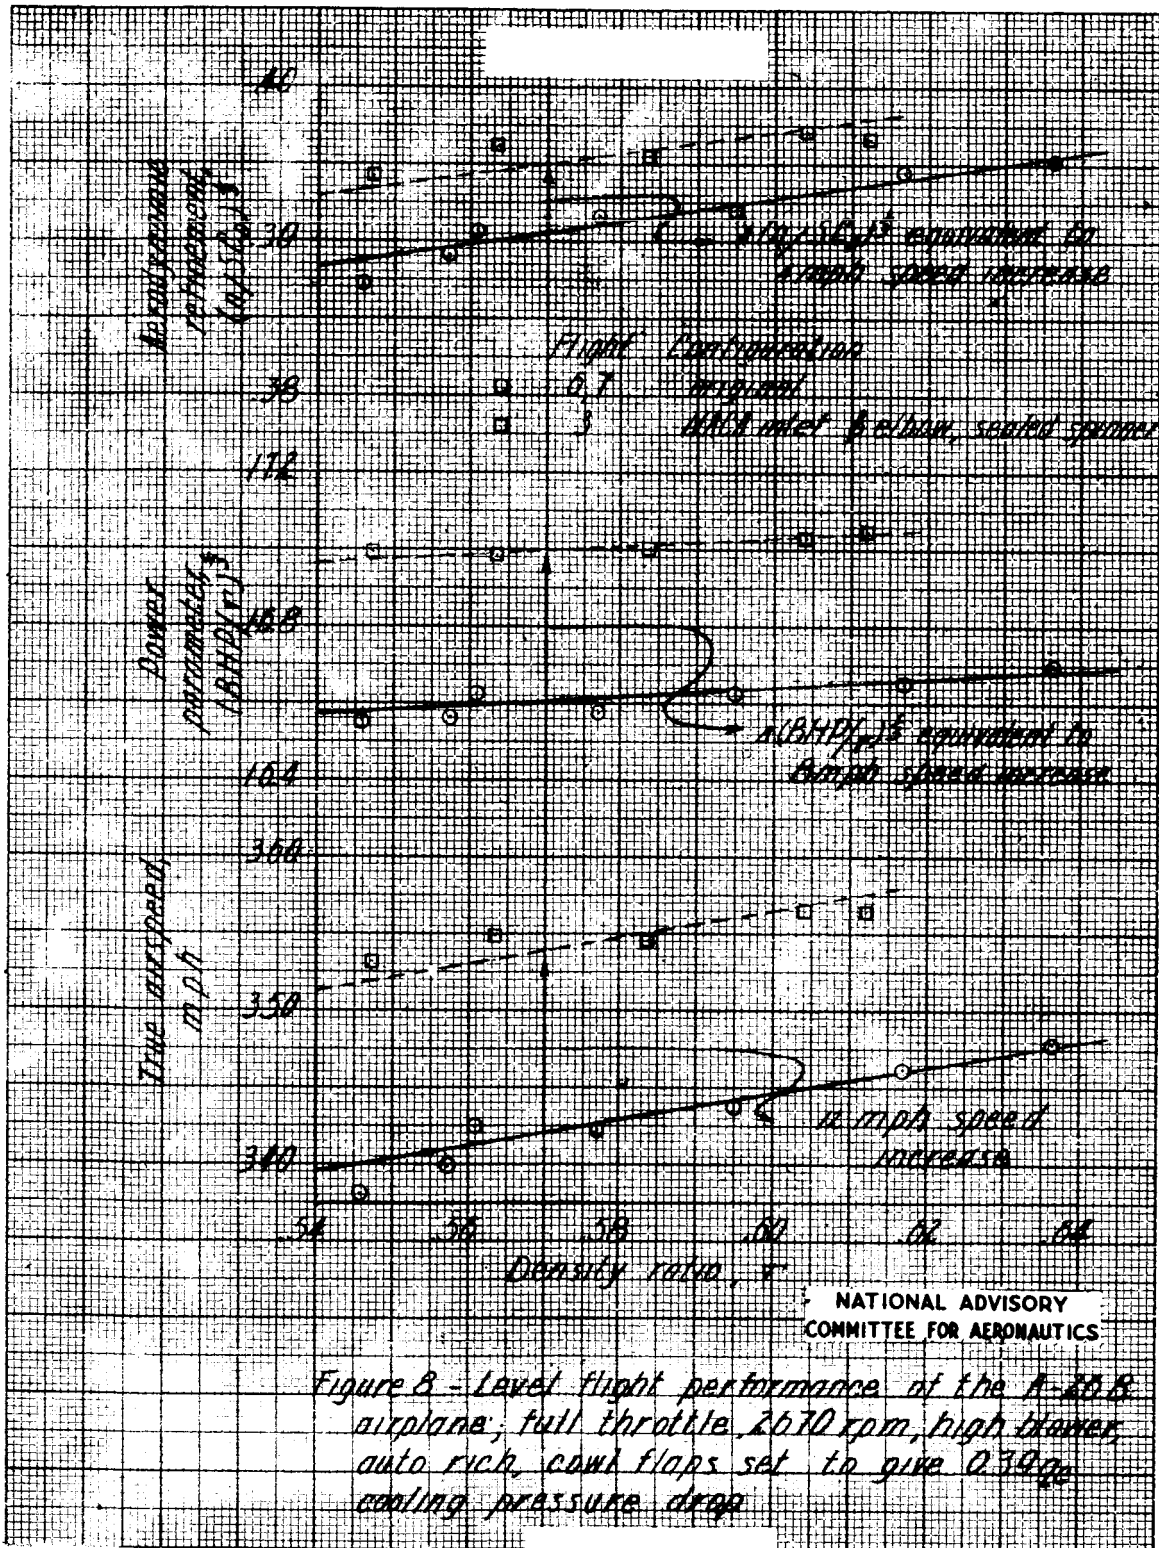 .40
Aerodynamic
refinement,
.39
equivalent to
4 mph speed increase
Flight Configuration
.38
6,7 original
3 NACA inlet & elbow, sealed spinner
17.2
Power
parameter,
16.8
equivalent to
8 mph speed increase
16.4
360
True airspeed,
mph
350
340
12 mph speed
increase
.54 .56 .58 .60 .62 .64
Density ratio, σ
NATIONAL ADVISORY
COMMITTEE FOR AERONAUTICS
Figure 8 - Level flight performance of the
airplane; full throttle, 2670 rpm, high blower,
auto rich, cowl flaps set to give 0.39
cooling pressure drop